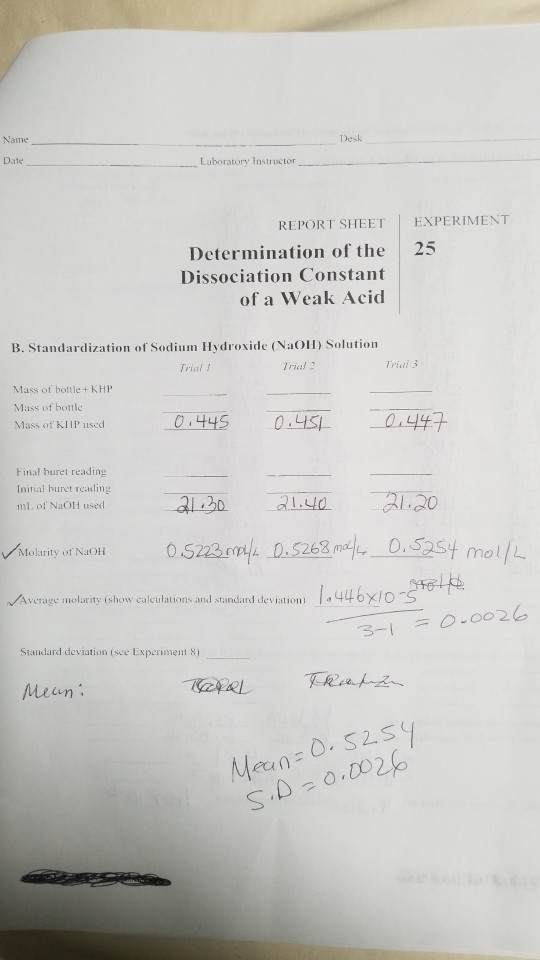 Name Desk
Date Laboratory Instructor
REPORT SHEET EXPERIMENT
Determination of the 25
Dissociation Constant
of a Weak Acid
B. Standardization of Sodium Hydroxide (NaOH) Solution
Trial 1 Trial 2 Trial 3
Mass of bottle + KHP
Mass of bottle
Mass of KHP used 0.445 0.451 0.447
Final buret reading
Initial buret reading
mL of NaOH used 21.30 21.40 21.20
✓Molarity of NaOH 0.5223 mol/L 0.5268 mol/L 0.5254 mol/L
✓Average molarity (show calculations and standard deviation) 1.446x10-5
3-1 = 0.0026
Standard deviation (see Experiment 8)
Mean:
Mean = 0.5254
S.D = 0.0026